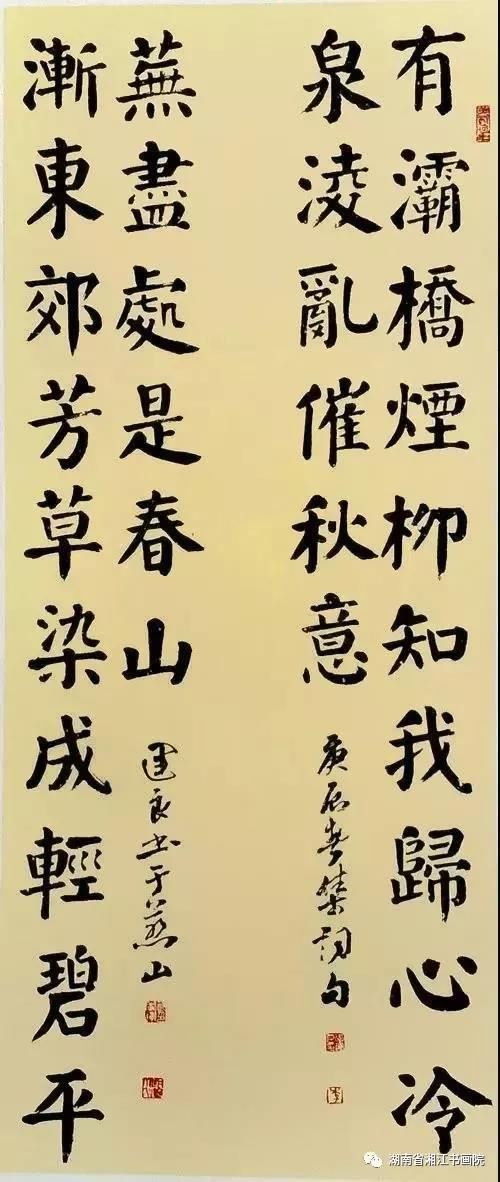 有灞橋煙柳知我歸心冷
泉淩亂催秋意
庚辰春集詞句
漸東郊芳草染成輕碧平
蕪盡處是春山
建良书于燕山
湖南省湘江书画院